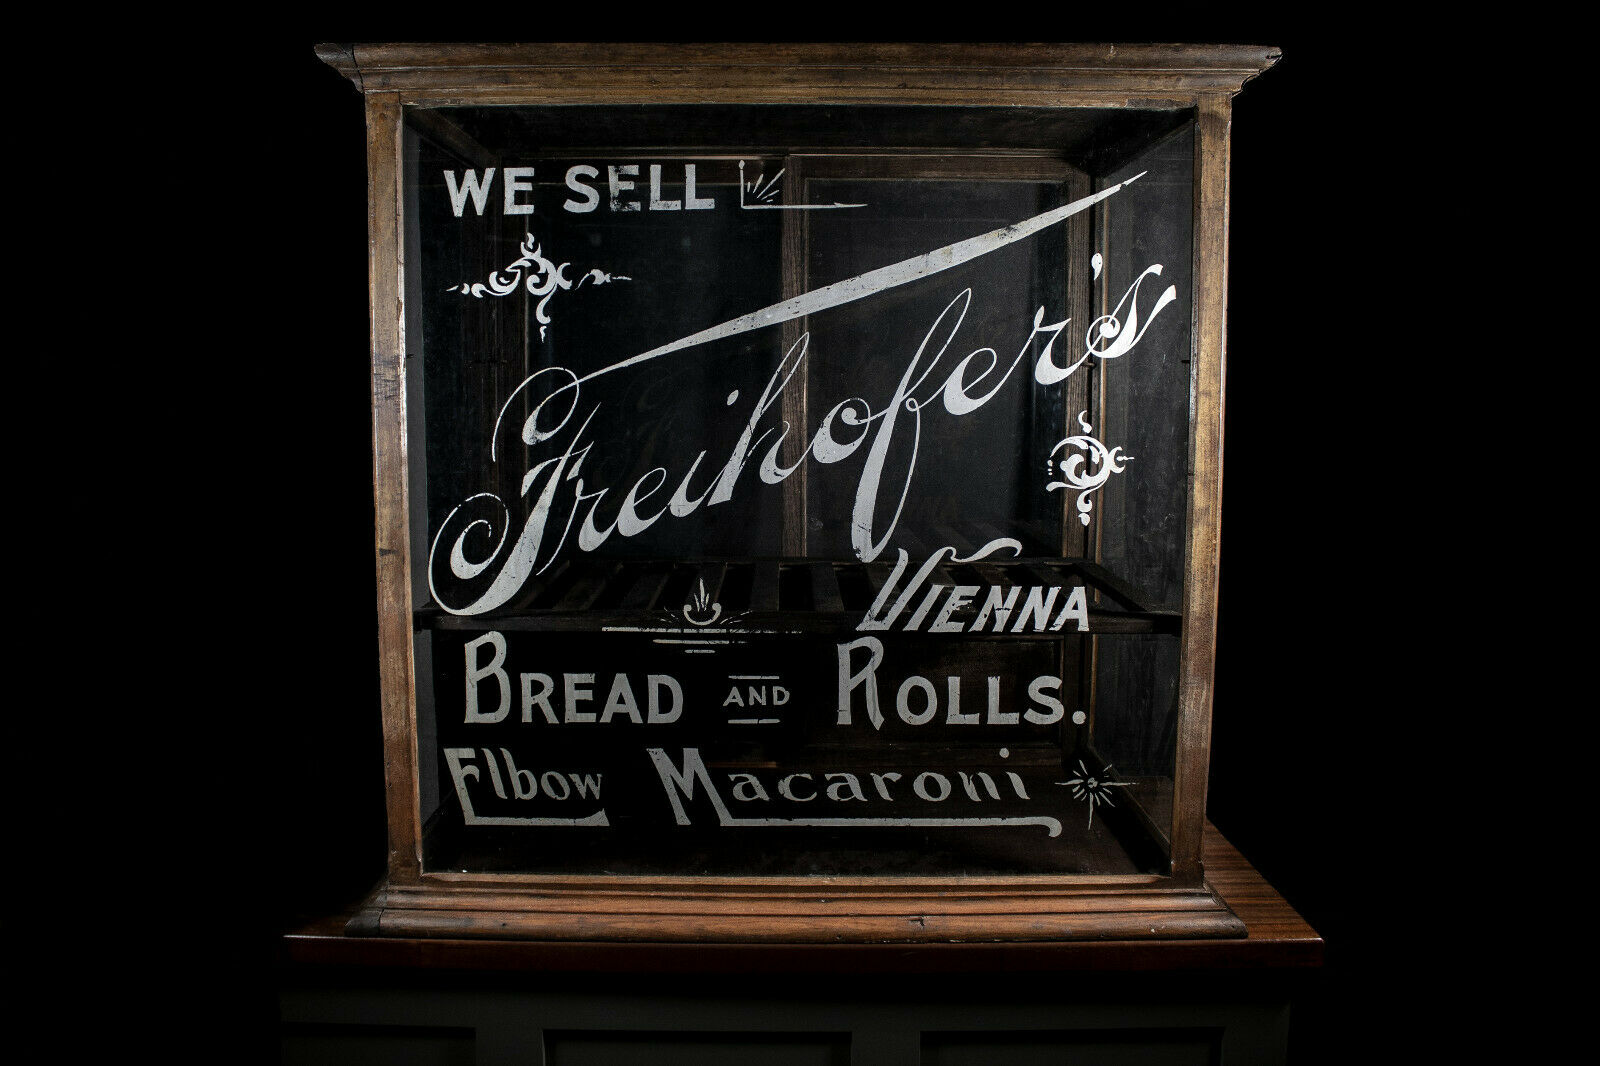 WE SELL
Freihofer's
VIENNA
BREAD AND ROLLS.
Elbow Macaroni